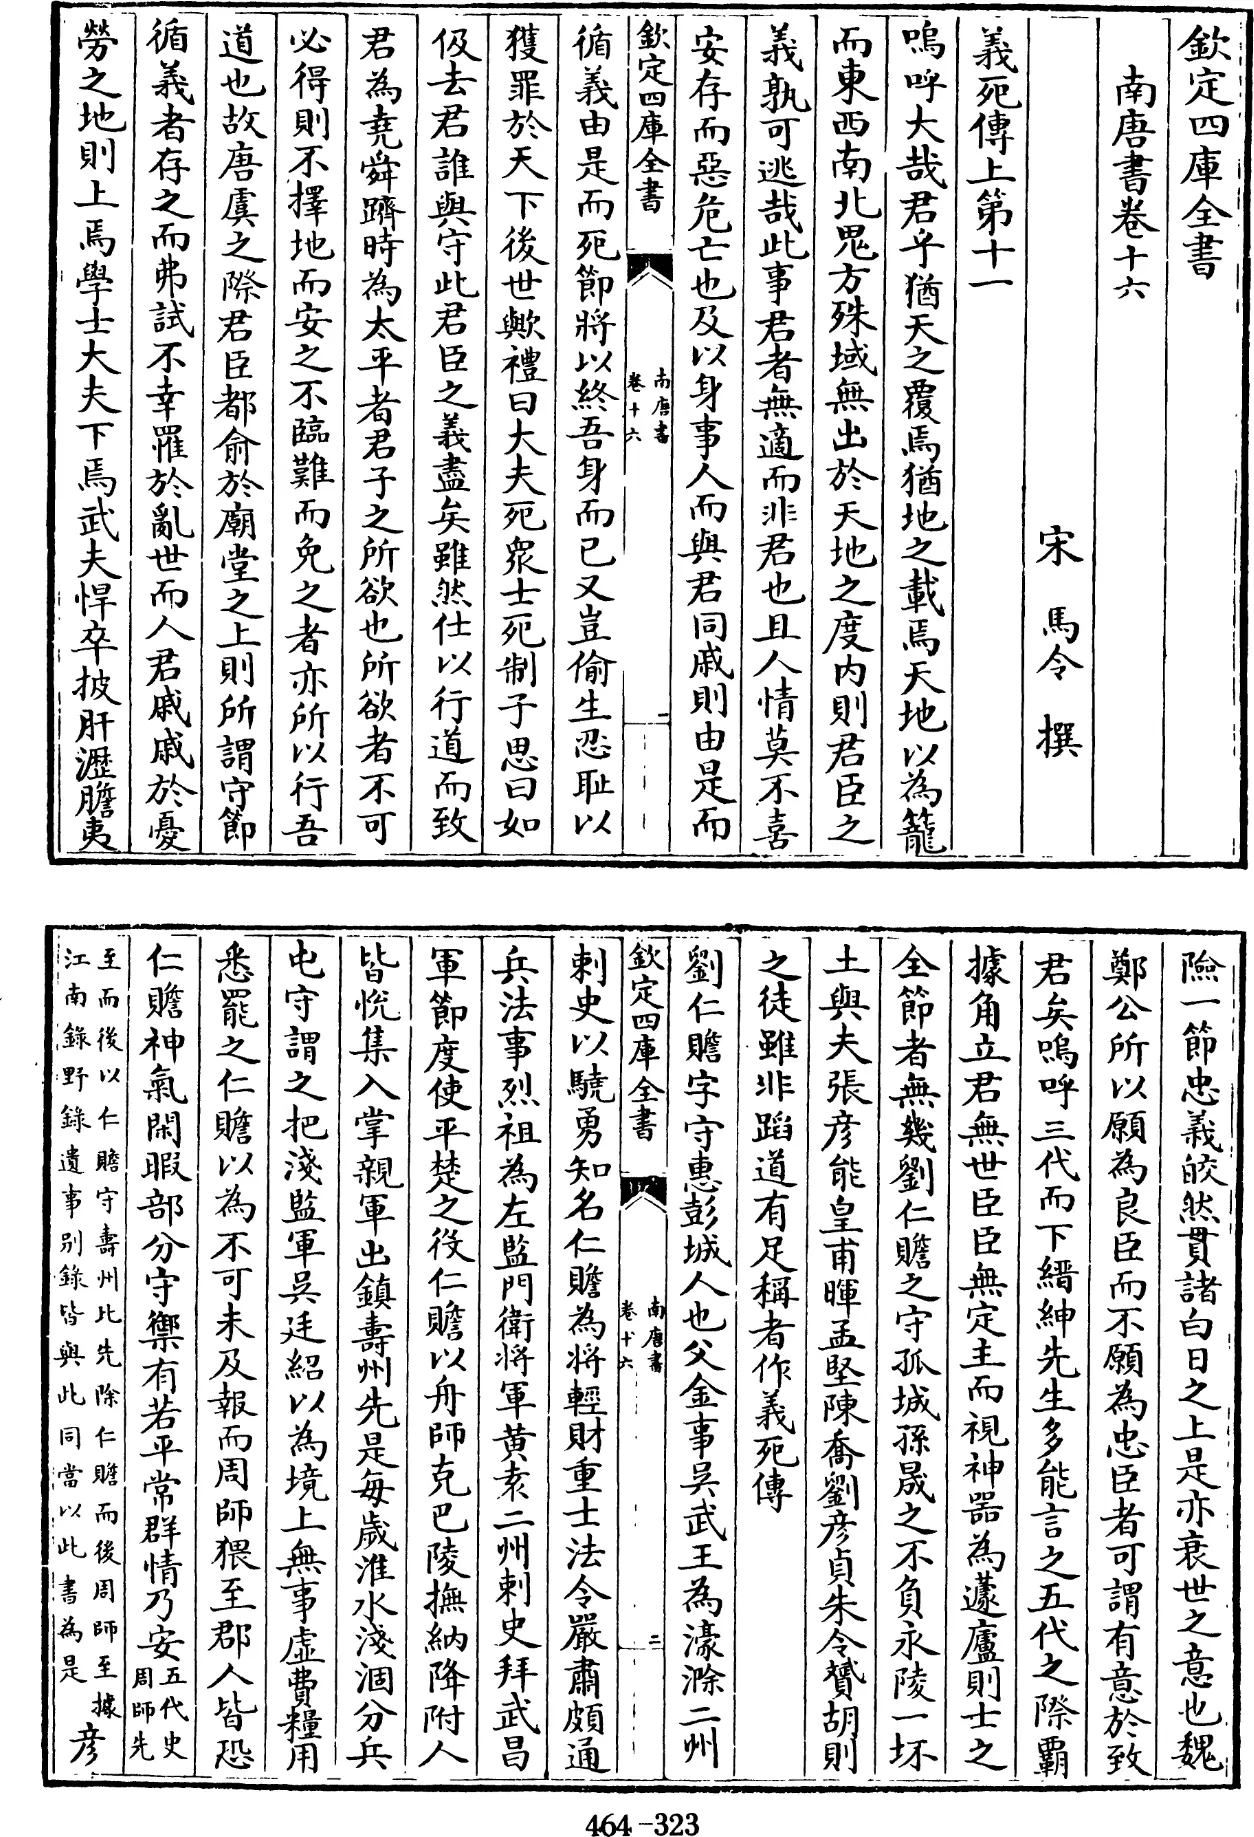 欽定四庫全書
南唐書卷十六
宋 馬令 撰
義死傳上第十一
嗚呼大哉君乎猶天之覆焉猶地之載焉天地以為籠
而東西南北鬼方殊域無出於天地之度内則君臣之
義孰可逃哉此事君者無適而非君也且人情莫不喜
安存而惡危亡也及以身事人而與君同戚則由是而
欽定四庫全書
南唐書
卷十六
二
循義由是而死節將以終吾身而已又豈偷生忍恥以
獲罪於天下後世歟禮曰大夫死衆士死制子思曰如
伋去君誰與守此君臣之義盡矣雖然仕以行道而致
君為堯舜躋時為太平者君子之所欲也所欲者不可
必得則不擇地而安之不臨難而免之者亦所以行吾
道也故唐虞之際君臣都俞於廟堂之上則所謂守節
循義者存之而弗試不幸罹於亂世而人君戚戚於憂
勞之地則上焉學士大夫下焉武夫悍卒披肝瀝膽夷
險一節忠義皎然貫諸白日之上是亦衰世之意也魏
鄭公所以願為良臣而不願為忠臣者可謂有意於致
君矣嗚呼三代而下縉紳先生多能言之五代之際霸
據角立君無世臣臣無定主而視神器為蘧廬則士之
全節者無幾劉仁贍之守孤城孫晟之不負永陵一抔
土與夫張彦能皇甫暉孟堅陳喬劉彦貞朱令贇胡則
之徒雖非蹈道有足稱者作義死傳
劉仁贍字守惠彭城人也父金事吳武王為濠滁二州
欽定四庫全書
南唐書
卷十六
三
刺史以驍勇知名仁贍為將輕財重士法令嚴肅頗通
兵法事烈祖為左監門衛將軍黄袁二州刺史拜武昌
軍節度使平楚之役仁贍以舟師克巴陵撫納降附人
皆悅集入掌親軍出鎮壽州先是每歲淮水淺涸分兵
屯守謂之把淺監軍吳廷紹以為境上無事虛費糧用
悉罷之仁贍以為不可未及報而周師猥至郡人皆恐
仁贍神氣閑暇部分守禦有若平常群情乃安五代史
周師先
至而後以仁贍守壽州比先除仁贍而後周師至據
江南錄野錄遺事別錄皆與此同當以此書為是
彦
464-323